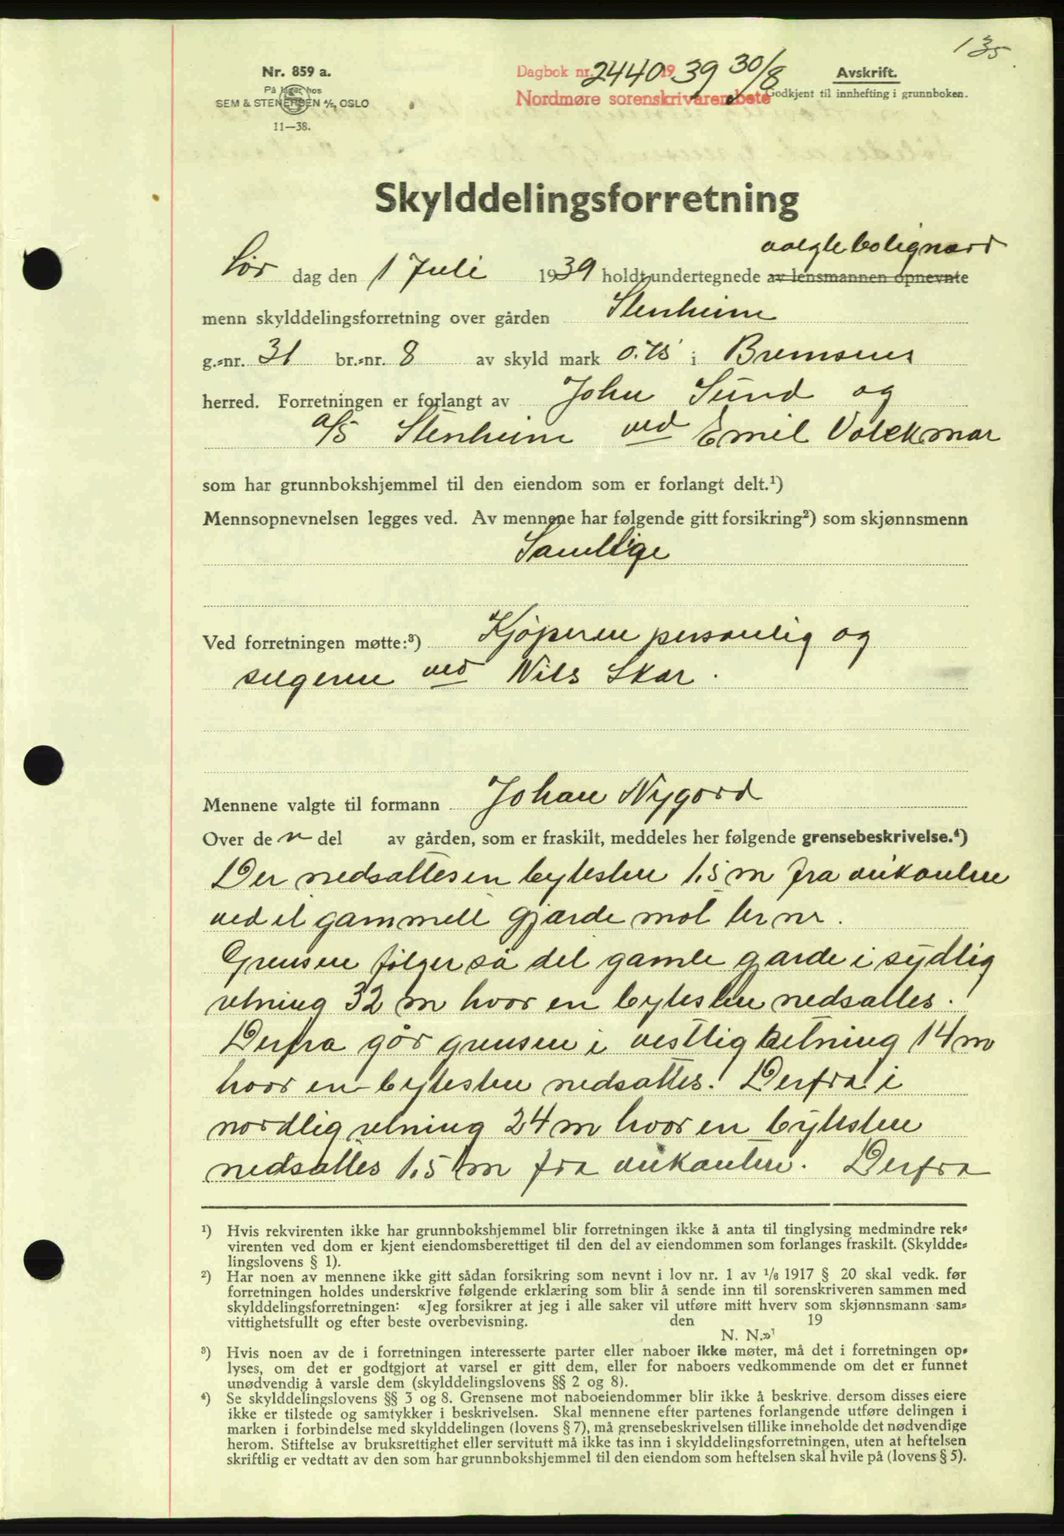 135
Nr. 859 a.
På lager hos
SEM & STENERSEN A/S, OSLO
11—38.
Dagbok nr. 2440 1939 30/8
Nordmøre sorenskrivarembete
Avskrift.
Godkjent til innhefting i grunnboken.
Skylddelingsforretning
valgte bolignærd
Lør dag den 1 Juli 1939 holdt undertegnede av lensmannen opnevnte
menn skylddelingsforretning over gården Stenheim
g.-nr. 31 br.-nr. 8 av skyld mark 0.75 i Bremsnes
herred. Forretningen er forlangt av John Sund og
a/s Stenheim ved Emil Volckmar
som har grunnbokshjemmel til den eiendom som er forlangt delt.¹)
Mennsopnevnelsen legges ved. Av mennene har følgende gitt forsikring²) som skjønnsmenn
Samtlige
Ved forretningen møtte:³) Kjøperen personlig og
selgeren ved Nils Skar.
Mennene valgte til formann Johan Nygård
Over den del av gården, som er fraskilt, meddeles her følgende grensebeskrivelse.⁴)
Der nedsattes en bytesten 1,5 m fra veikanten
ved et gammelt gjærde mot br nr.
Grensen følger så det gamle gjarde i sydlig
retning 32 m hvor en bytesten nedsattes.
Derfra går grensen i vestlig retning 14 m
hvor en bytesten nedsattes. Derfra i
nordlig retning 24 m hvor en bytesten
nedsattes 1,5 m fra veikanten. Derfra
¹) Hvis rekvirenten ikke har grunnbokshjemmel blir forretningen ikke å anta til tinglysing medmindre rek-
virenten ved dom er kjent eiendomsberettiget til den del av eiendommen som forlanges fraskilt. (Skyldde-
lingslovens § 1).
²) Har noen av mennene ikke gitt sådan forsikring som nevnt i lov nr. 1 av 1/6 1917 § 20 skal vedk. før
forretningen holdes underskrive følgende erklæring som blir å sende inn til sorenskriveren sammen med
skylddelingsforretningen: «Jeg forsikrer at jeg i alle saker vil utføre mitt hverv som skjønnsmann sam-
vittighetsfullt og efter beste overbevisning. den 19
N. N.»
³) Hvis noen av de i forretningen interesserte parter eller naboer ikke møter, må det i forretningen op-
lyses, om det er godtgjort at varsel er gitt dem, eller for naboers vedkommende om det er funnet
unødvendig å varsle dem (skylddelingslovens §§ 2 og 8).
⁴) Se skylddelingslovens §§ 3 og 8. Grensene mot naboeiendommer blir ikke å beskrive, dersom disses eiere
ikke er tilstede og samtykker i beskrivelsen. Skal mennene efter partenes forlangende utføre delingen i
marken i forbindelse med skylddelingen (lovens § 7), må grensebeskrivelsen tillike inneholde det nødvendige
herom. Stiftelse av bruksrettighet eller servitutt må ikke tas inn i skylddelingsforretningen, uten at heftelsen
skriftlig er vedtatt av den som har grunnbokshjemmel til den eiendom som heftelsen skal hvile på (lovens § 5).